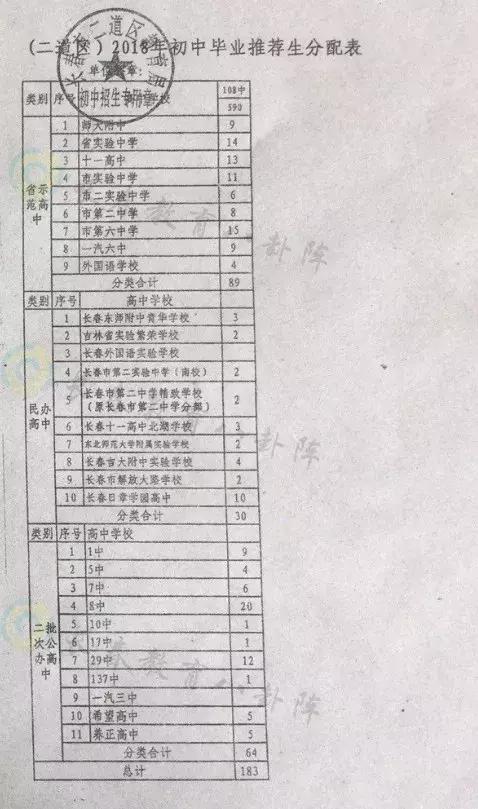 (二道区)2018年初中毕业推荐生分配表
长春市二道区教育局
初中招生专用章
单位 章:
类别 序号 学校 108中
590
省示范高中
1 师大附中 9
2 省实验中学 14
3 十一高中 13
4 市实验中学 11
5 市二实验中学 6
6 市第二中学 8
7 市第六中学 15
8 一汽六中 9
9 外国语学校 4
分类合计 89
类别 序号 高中学校
民办高中
1 长春东师附中青华学校 3
2 吉林省实验繁荣学校 2
3 长春外国语实验学校
4 长春市第二实验中学(南校) 2
5 长春市第二中学精致学校 2
(原长春市第二中学分部)
6 长春十一高中北湖学校 3
7 东北师范大学附属实验学校 2
8 长春吉大附中实验学校 4
9 长春市解放大路学校 2
10 长春日章学园高中 10
分类合计 30
类别 序号 高中学校
二批次公办高中
1 1中 9
2 5中 4
3 7中 6
4 8中 20
5 10中 1
6 17中 1
7 29中 12
8 137中 1
9 一汽三中
10 希望高中 5
11 养正高中 5
分类合计 64
总计 183
教育八卦阵
长春教育八卦阵